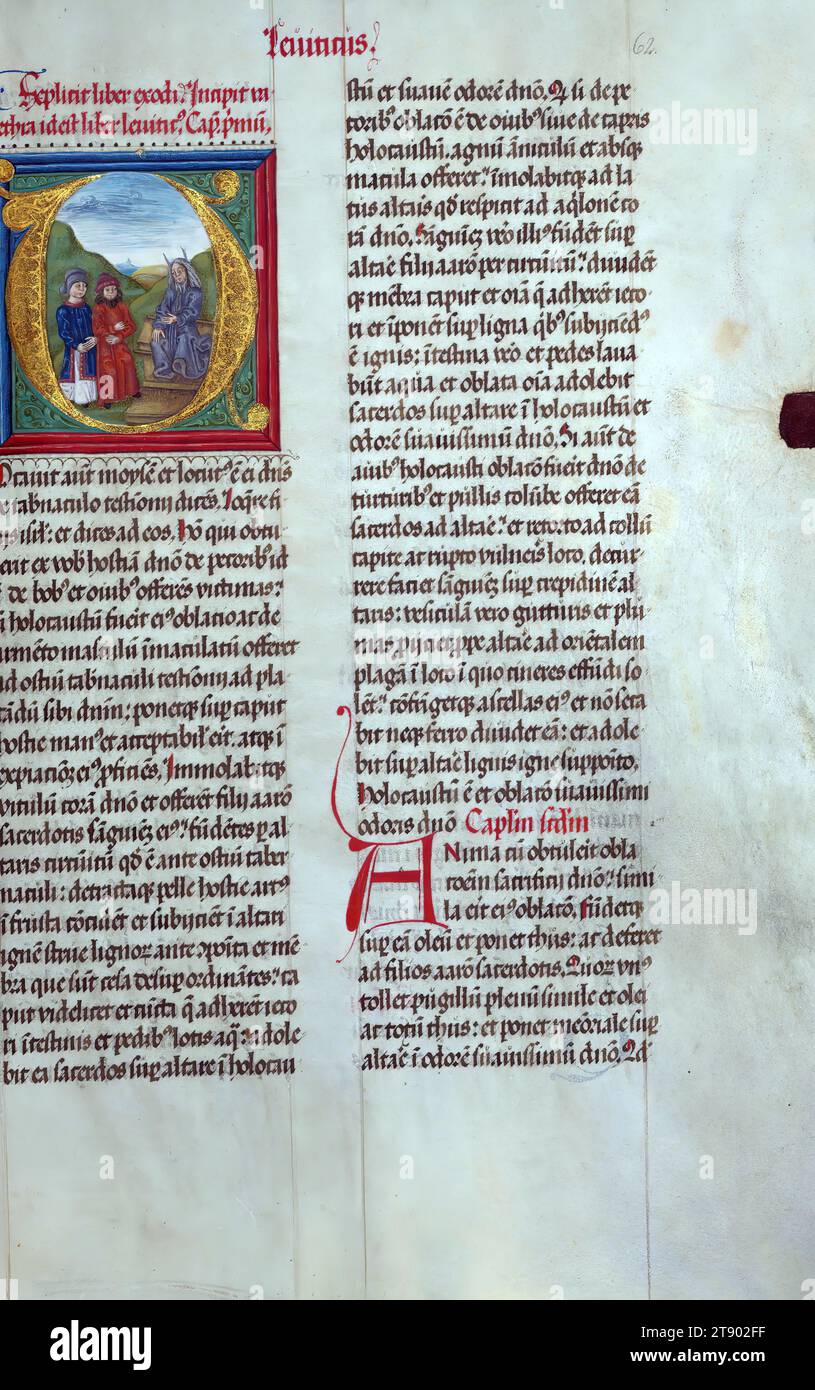 Leuiticus.
62.
Explicit liber exodi. Incipit va
iethra id est liber leuitic9. Cap. pmū,
ocauit aūt moysē et locut9 ē ei dn̄s
de tabnaculo testimonij dicēs. Loq̄re fi
lijs isrl: et dices ad eos, hō qui obtu
lerit ex vob9 hostiā dn̄o de pecorib9 id
ē de bob9 et ouib9 offerēs victimas:
si holocaustū fueit ei9 oblatio ac de
armēto masculū īmaculatū offeret
ad ostiū tabnaculi testīonij ad pla
cādū sibi dnīm: ponetq sup caput
hostie man9 et acceptabil eit, atq ī
expiacōeꝫ ei9 pficiēs, Immolabitq
vitulū corā dn̄o et offerēt filij aarō
sacerdotis sāguiēꝫ ei9: fūdētes p al
taris circuitū qd̄ ē ante ostiū taber
naculi: detractaq pelle hostie art9
ī frusta cōcidēt et subijciēt ī altari
ignē strue lignoꝝ ante ꝯpoīta et mē
bra que sūt cesa desup ordinātes: ca
put videlicet et cūcta q̄ adherēt ieco
ri ītestinis et pedib9 lotis aq̄: adole
bit ea sacerdos sup altare ī holocau
stū et suauē odorē dn̄o. Qd si de pe
corib9 oblatō ē de ouib9 siue de capris
holocaustū, agnū āniculū et absq
macula offeret: īmolabitq ad la
tus altaris qd̄ respicit ad aq̄lonē co
rā dn̄o. Sāguiēꝫ vō illi9 fūdēt sup
altāe filij aarō per circuitū: diuidēt
q mēbra caput et oīa q̄ adherēt ieco
ri et īponēt sup ligna qb9 subijciēd9
ē ignis: ītestina vō et pedes laua
būt aqua et oblata oīa adolebit
sacerdos sup altare ī holocaustū et
odorē suauissimū dn̄o. Si aūt de
auib9 holocausti oblatō fueit dn̄o de
turturib9 et pullis colūbe offeret eā
sacerdos ad altāe: et retorto ad collū
capite ac rupto vulneis loco, decur
rere faciet sāguiēꝫ sup crepidinē al
taris: vesiculā vero gutturis et plu
mas proijciet ꝓpe altāe ad oriētalem
plagā ī loco ī quo cineres effūdi so
lēt: cōfrīgetq ascellas ei9 et nō seca
bit neq ferro diuidet eā: et adole
bit sup altāe lignis igne supposito,
holocaustū ē et oblatō suauissimi
odoris dn̄o Caplm̄ scdm̄
ANima cū obtuleit obla
coēm sacrificij dn̄o: simi
la eit ei9 oblatō, fūdetq
sup eā oleū et ponet thus: ac deferet
ad filios aarō sacerdotis. Quoꝝ vn9
tollet pugillū plenū simile et olei
ac totū thus: et ponet meōriale sup
altāe ī odorē suauissimū dn̄o. Qd
alamy
Image ID: 2T902FF
www.alamy.com